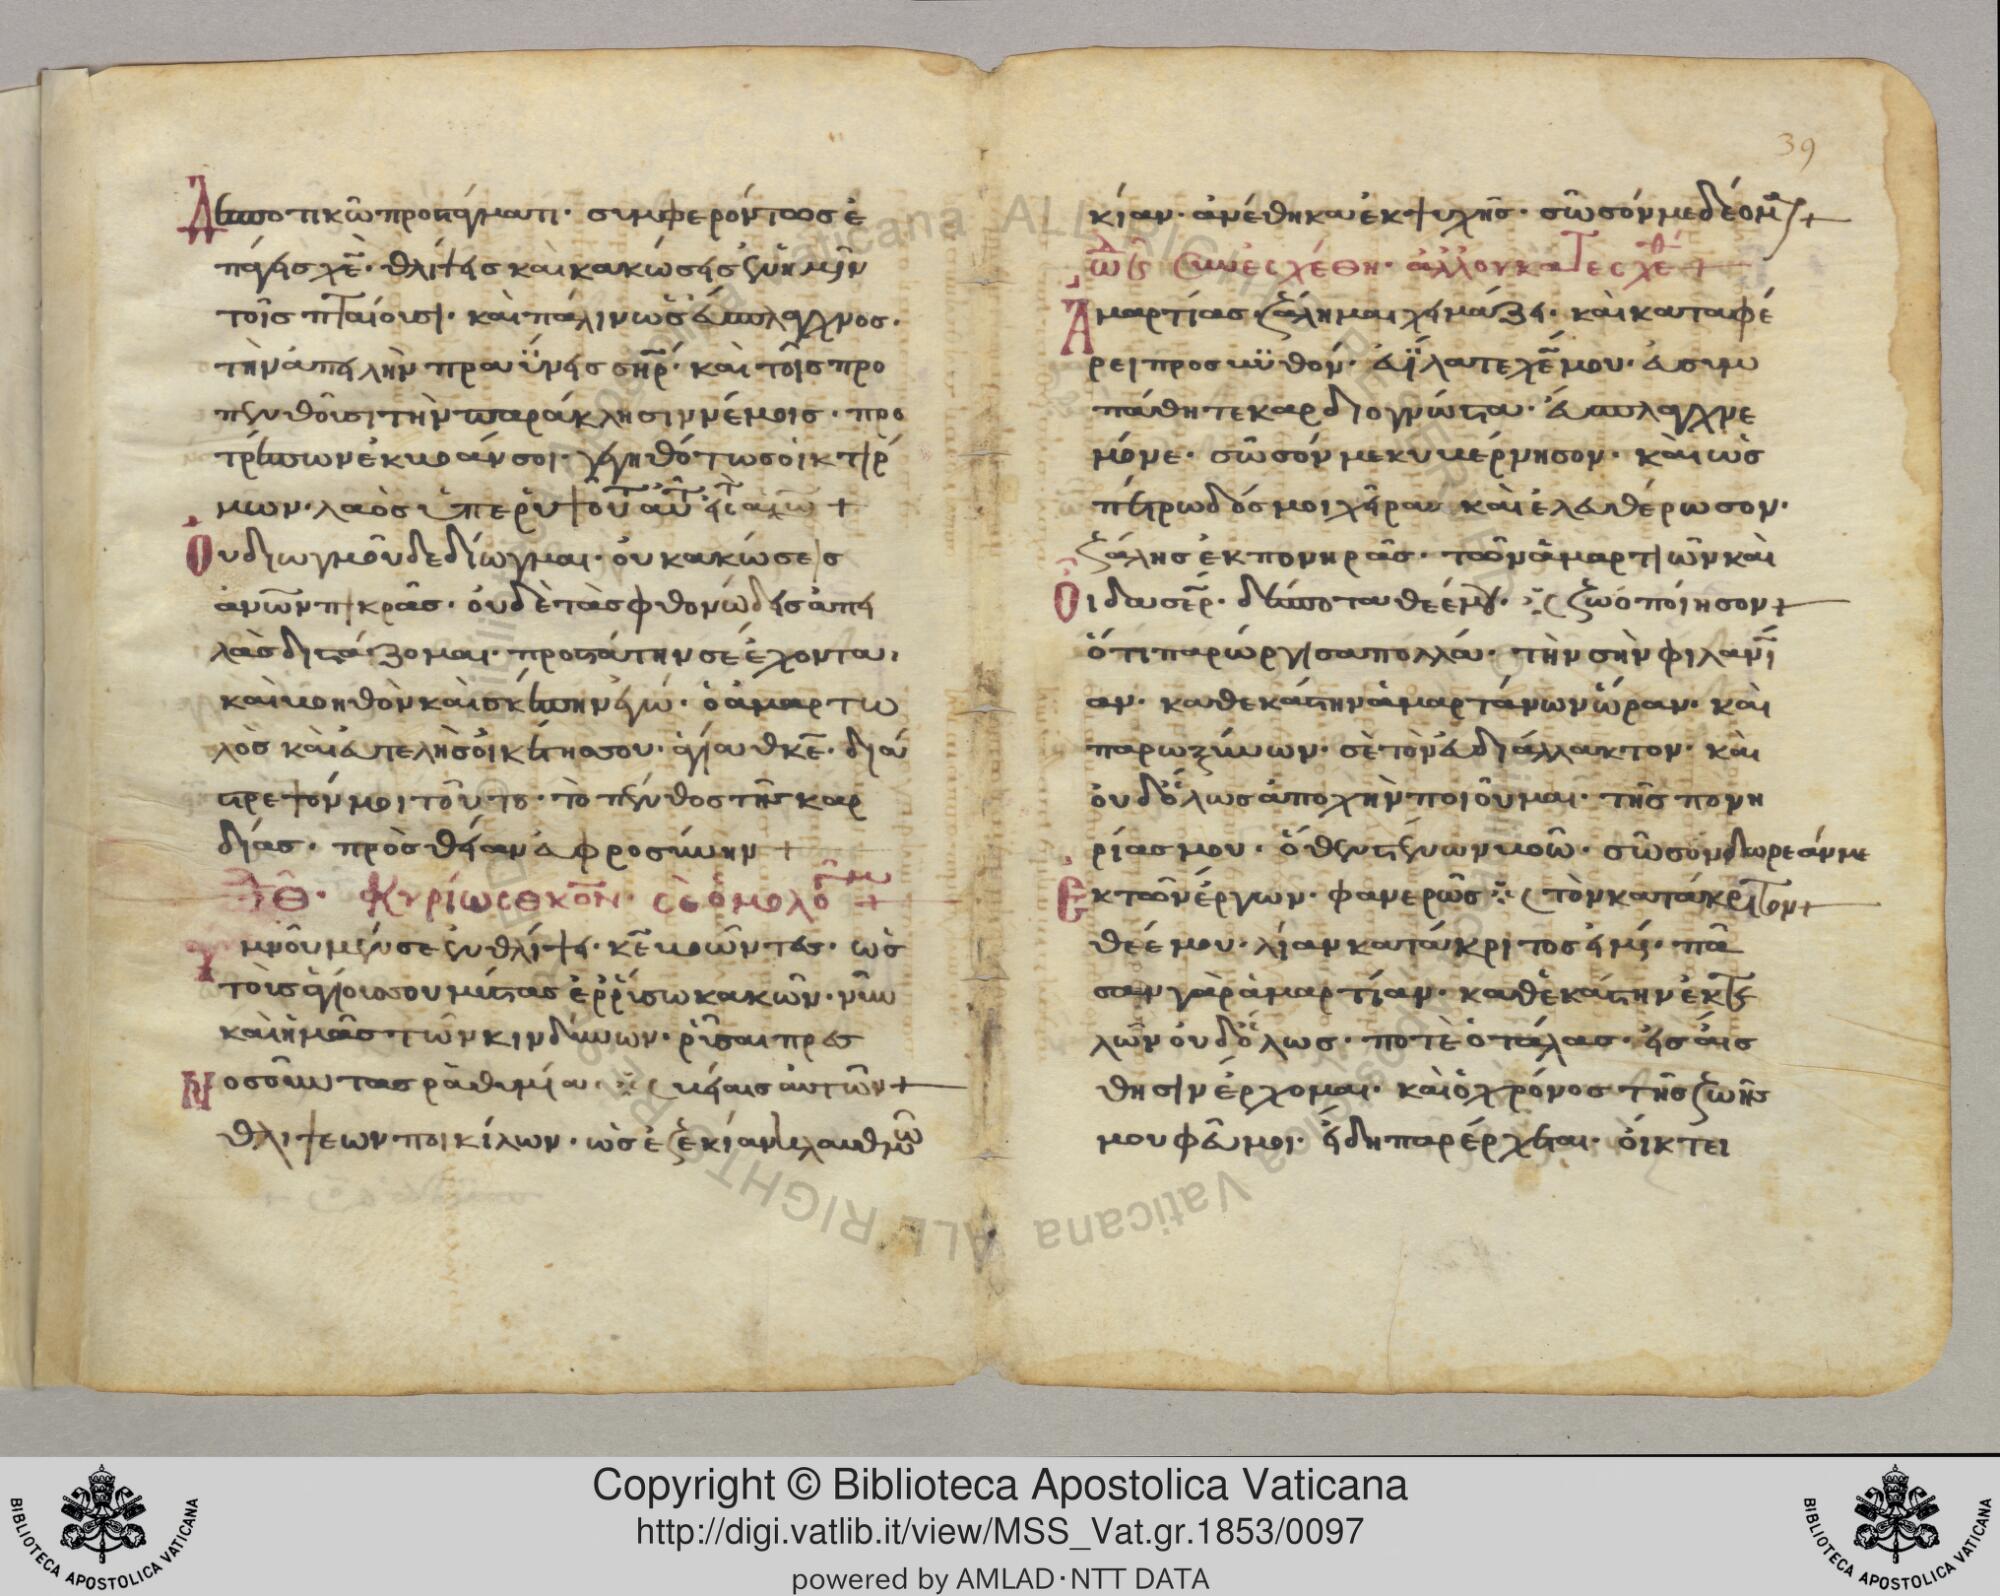 Δεσποτικῶ προστάγματι· συμφερόντως ἐ
πάγεις χε· θλίψεις καὶ κακώσεις ἐν ἡμῖν
τοῖς πταίουσι· καὶ πάλιν ὡς εὔσπλαγχνος·
τὴν ἀπειλὴν πραΰνεις σηρ· καὶ τοῖς προ
πενθοῦσι τὴν παράκλησιν νέμοις· προ
τρέπων ἐκβοάν σοι· γεγηθότως οἰκτίρ
μων· λαὸς ὑπερυψοῦτ αὐτ εἰς αἰῶ +
Ου διωγμὸν δεδίωγμαι· οὐ κακώσεις
ἀνῶν πικρὰς· οὐδὲ τὰς φθονώδεις ἀπει
λὰς διστάζομαι· προστάτην σὲ ἔχοντα·
καὶ βοηθὸν καὶ σκέπην ἐγώ· ὁ ἁμαρτω
λὸς καὶ εὐτελὴς οἰκέτης σου· ἁγία θκε· διὰ
στρεψόν μοι τοῦτο· τὸ πένθος τῆς καρ
δίας· πρὸς θείαν εὐφροσύνην +
ᾠδ θ· Κυρίως θκον· σὲ ὁμολο
Υμνοῦμέν σε ἐν θλίψει· κε βοῶντες· ὡς
τοὺς ἁγίους σου μύστας ἐρρύσω κακῶν· νῦν
καὶ ἡμᾶς τῶν κινδύνων· ῥῦσαι πρεσ
Νοσοῦντας ῥαθυμία βείαις αὐτῶν +
θλίψεων ποικίλων· ὡς ἐζεκίαν
39
κίαν· ἀνέθηκα ἐκ ψυχῆς· σῶσόν με δέομ
ᾠδ ς Συνεσχέθη· ἀλλ οὐ κατεσχέθ +
Αμαρτίας ζάλη μαι χειμάζει· καὶ καταφέ
ρει προς βυθόν· εὐΐλατε χε μου· εὐσυμ
πάθητε καρδιογνῶστα· εὔσπλαγχνε
μόνε· σῶσόν με κυβέρνησον· καὶ ὡς
πέτρω δός μοι χεῖρα καὶ ἐλευθέρωσον·
ζάλης ἐκ πονηρᾶς· τῶν ἁμαρτιῶν καὶ
Οἶδα σερ· δέσποτα θεέ μου· ζωοποίησον +
ὅτι παρώργισα πολλά· τὴν σὴν φιλανι
αν· καθεκάστην ἁμαρτάνων ὥραν· καὶ
παροξύνων· σὲ τὸν εὐδιάλλακτον· καὶ
οὐδόλως ἀποχὴν ποιοῦμαι· τῆς πονη
ρίας μου· ὅθεν στένων βοῶ· σῶσον δωρεάν με
Εκ τῶν ἔργων· φανερῶς τὸν κατάκριτον +
θεέ μου· λίαν κατάκριτος εἰμί· πᾶ
σαν γὰρ ἁμαρτίαν· καθεκάστην ἐκτε
λῶν οὐδόλως· ποτὲ ὁ τάλας· εἰς αἴσ
θησιν ἔρχομαι· καὶ ὁ χρόνος τῆς ζωῆς
μου φεῦ μοι· ἤδη παρέρχεται· οἴκτει
Copyright © Biblioteca Apostolica Vaticana
http://digi.vatlib.it/view/MSS_Vat.gr.1853/0097
powered by AMLAD·NTT DATA
BIBLIOTECA APOSTOLICA VATICANA
BIBLIOTECA APOSTOLICA VATICANA